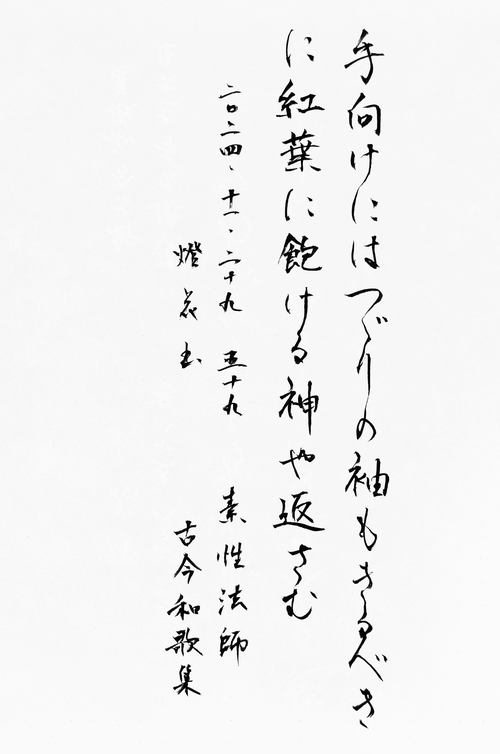 手向けにはつゞりの袖もきるべき
に紅葉に飽ける神や返さむ
二〇二四、十一、二十九 五十九 素性法師
燈花书 古今和歌集